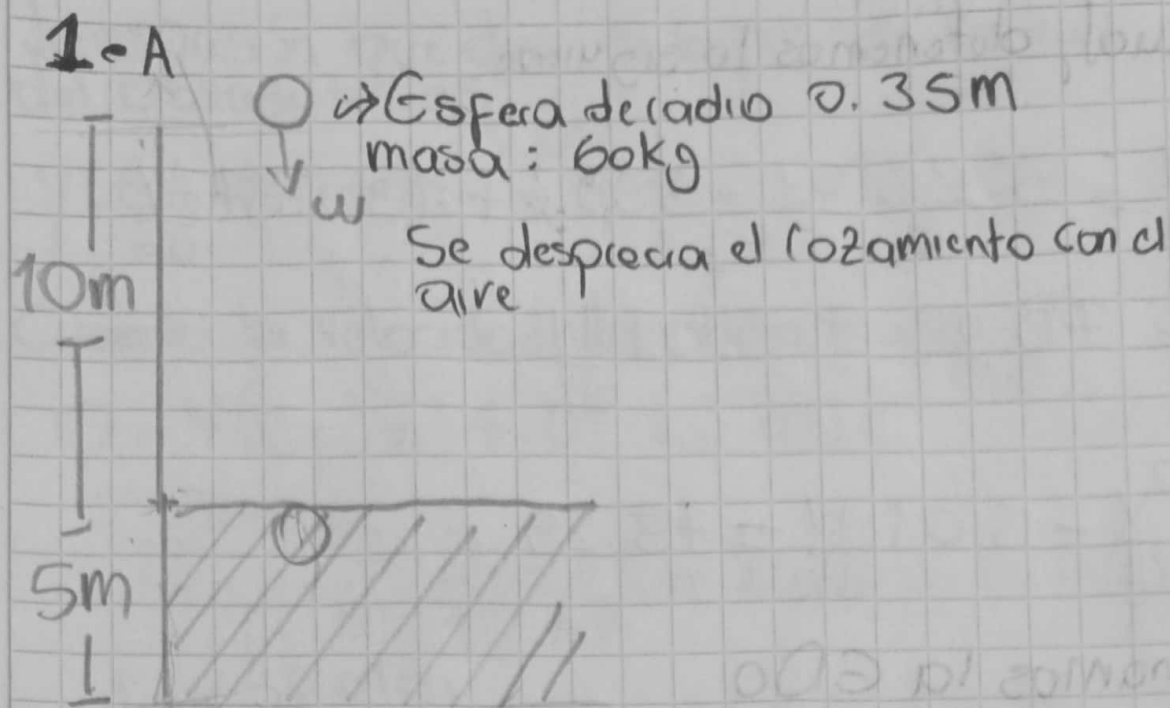 1-A
⇒ Esfera de radio 0.35m
masa: 60kg
w
Se desprecia el rozamiento con el
aire
10m
5m